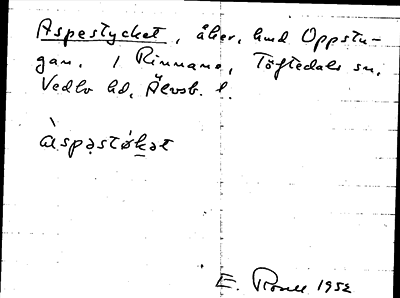 Aspestycket, åker, hmd Oppstu-
gan. 1 Rinnane, Töftedals sn,
Vedbo hd, Älvsb. l.
àspəstøkət
E. 1952